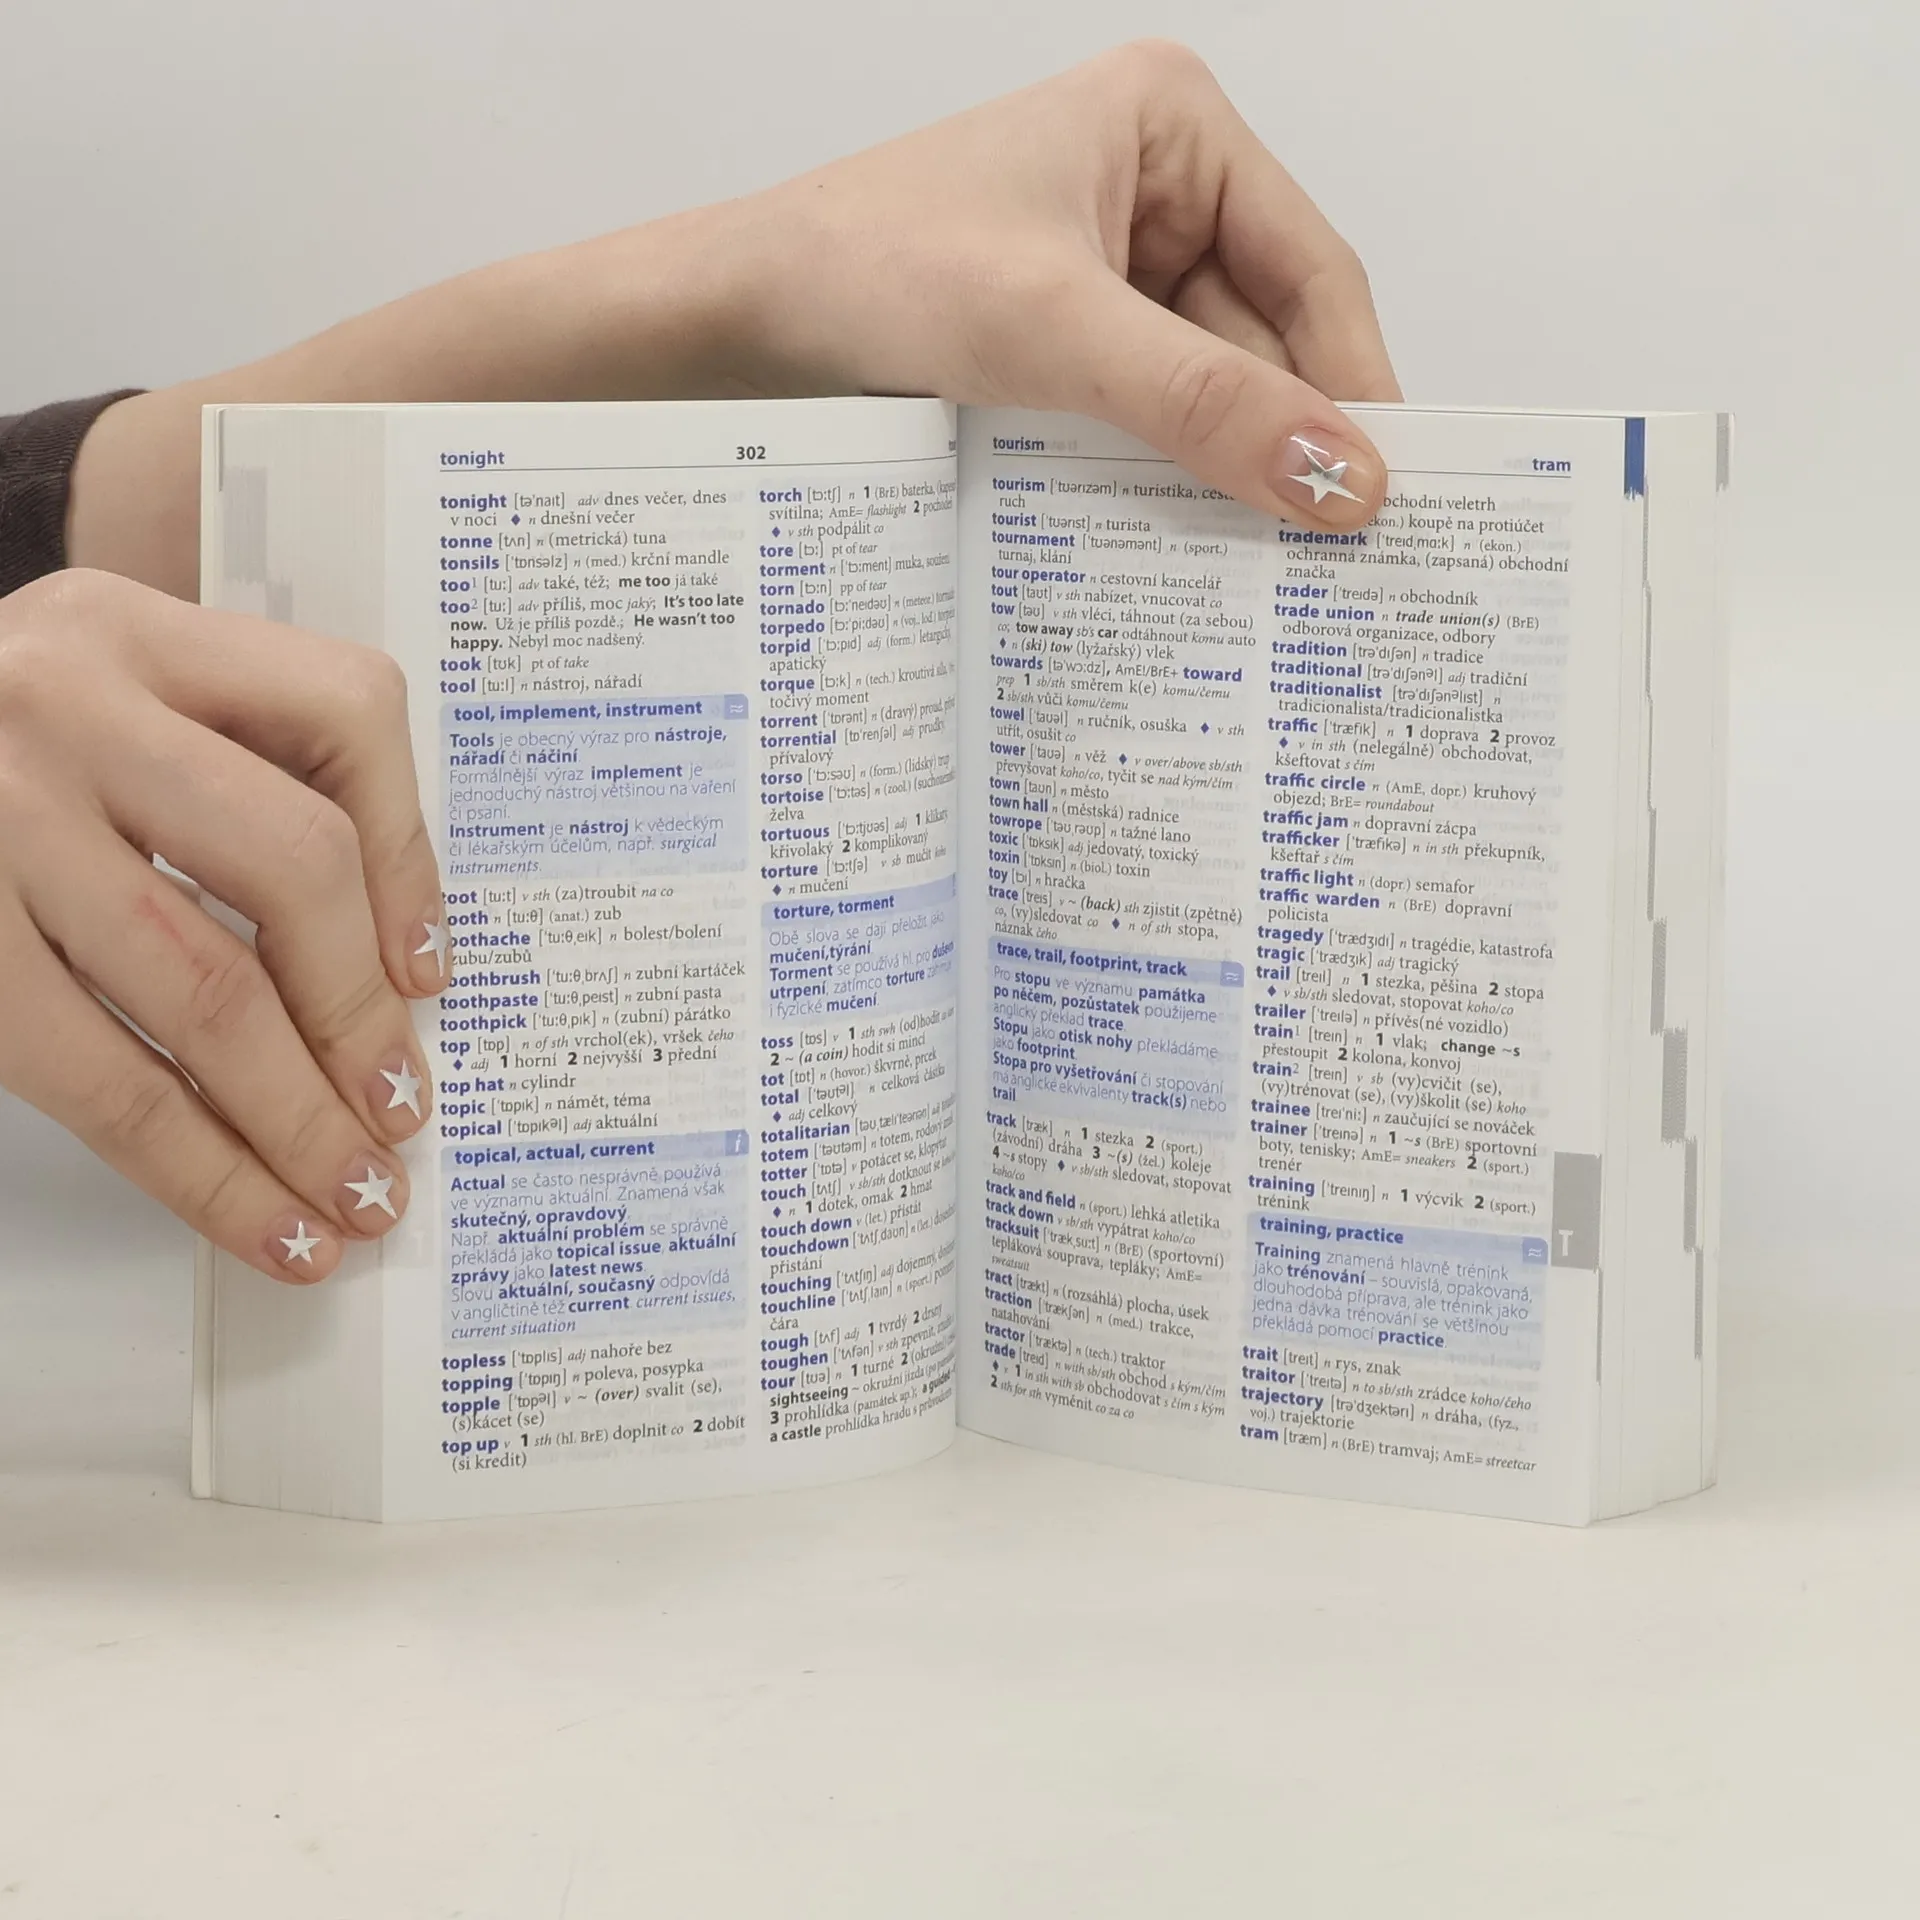 tonight
302
tonight [təˈnaɪt] adv dnes večer, dnes
v noci ♦ n dnešní večer
tonne [tʌn] n (metrická) tuna
tonsils [ˈtɒnsəlz] n (med.) krční mandle
too¹ [tuː] adv také, též; me too já také
too² [tuː] adv příliš, moc jaký; It's too late
now. Už je příliš pozdě.; He wasn't too
happy. Nebyl moc nadšený.
took [tʊk] pt of take
tool [tuːl] n nástroj, nářadí
tool, implement, instrument ≈
Tools je obecný výraz pro nástroje,
nářadí či náčiní.
Formálnější výraz implement je
jednoduchý nástroj většinou na vaření
či psaní.
Instrument je nástroj k vědeckým
či lékařským účelům, např. surgical
instruments.
toot [tuːt] v sth (za)troubit na co
ooth n [tuːθ] (anat.) zub
oothache [ˈtuːθˌeɪk] n bolest/bolení
zubu/zubů
oothbrush [ˈtuːθˌbrʌʃ] n zubní kartáček
toothpaste [ˈtuːθˌpeɪst] n zubní pasta
toothpick [ˈtuːθˌpɪk] n (zubní) párátko
top [tɒp] n of sth vrchol(ek), vršek čeho
♦ adj 1 horní 2 nejvyšší 3 přední
top hat n cylindr
topic [ˈtɒpɪk] n námět, téma
topical [ˈtɒpɪkəl] adj aktuální
topical, actual, current i
Actual se často nesprávně používá
ve významu aktuální. Znamená však
skutečný, opravdový.
Např. aktuální problém se správně
překládá jako topical issue, aktuální
zprávy jako latest news.
Slovu aktuální, současný odpovídá
v angličtině též current. current issues,
current situation
topless [ˈtɒplɪs] adj nahoře bez
topping [ˈtɒpɪŋ] n poleva, posypka
topple [ˈtɒpəl] v ~ (over) svalit (se),
(s)kácet (se)
top up v 1 sth (hl. BrE) doplnit co 2 dobít
(si kredit)
torch [tɔːtʃ] n 1 (BrE) baterka,
svítilna; AmE= flashlight 2
♦ v sth podpálit co
tore [tɔː] pt of tear
torment n [ˈtɔːment] muka, soužení
torn [tɔːn] pp of tear
tornado [tɔːˈneɪdəʊ] n (meteor.)
torpedo [tɔːˈpiːdəʊ] n (voj., loď.)
torpid [ˈtɔːpɪd] adj (form.) letargický,
apatický
torque [tɔːk] n (tech.) kroutivá síla,
točivý moment
torrent [ˈtɒrənt] n (dravý) proud,
torrential [tɒˈrenʃəl] adj prudký,
přívalový
torso [ˈtɔːsəʊ] n (form.) (lidský) trup
tortoise [ˈtɔːtəs] n (zool.)
želva
tortuous [ˈtɔːtjʊəs] adj 1 klikatý,
křivolaký 2 komplikovaný
torture [ˈtɔːtʃə] v sb mučit koho
♦ n mučení
torture, torment
Obě slova se dají přeložit jako
mučení, týrání.
Torment se používá hl. pro dušení
utrpení, zatímco torture zahrnuje
i fyzické mučení.
toss [tɒs] v 1 sth swh (od)hodit
2 ~ (a coin) hodit si mincí
tot [tɒt] n (hovor.) škvrně, prcek
total [ˈtəʊtəl] n celková částka
♦ adj celkový
totalitarian [təʊˌtælɪˈteərɪən] adj
totem [ˈtəʊtəm] n totem, rodový
totter [ˈtɒtə] v potácet se, klopýtat
touch [tʌtʃ] v sb/sth dotknout se
♦ n 1 dotek, omak 2 hmat
touch down v (let.) přistát
touchdown [ˈtʌtʃˌdaʊn] n (let.)
přistání
touching [ˈtʌtʃɪŋ] adj dojemný,
touchline [ˈtʌtʃˌlaɪn] n (sport.)
čára
tough [tʌf] adj 1 tvrdý 2 drsný
toughen [ˈtʌfən] v sth zpevnit,
tour [tʊə] n 1 turné 2 (okružní)
sightseeing ~ okružní jízda
3 prohlídka (památek ap.); a guided
a castle prohlídka hradu s průvodcem
tourism
tram
tourism [ˈtʊərɪzəm] n turistika,
ruch
tourist [ˈtʊərɪst] n turista
tournament [ˈtʊənəmənt] n (sport.)
turnaj, klání
tour operator n cestovní kancelář
tout [taʊt] v sth nabízet, vnucovat co
tow [təʊ] v sth vléci, táhnout (za sebou)
co; tow away sb's car odtáhnout komu auto
♦ n (ski) tow (lyžařský) vlek
towards [təˈwɔːdz], AmE!/BrE+ toward
prep 1 sb/sth směrem k(e) komu/čemu
2 sb/sth vůči komu/čemu
towel [ˈtaʊəl] n ručník, osuška ♦ v sth
utřít, osušit co
tower [ˈtaʊə] n věž ♦ v over/above sb/sth
převyšovat koho/co, tyčit se nad kým/čím
town [taʊn] n město
town hall n (městská) radnice
towrope [ˈtəʊˌrəʊp] n tažné lano
toxic [ˈtɒksɪk] adj jedovatý, toxický
toxin [ˈtɒksɪn] n (biol.) toxin
toy [tɔɪ] n hračka
trace [treɪs] v ~ (back) sth zjistit (zpětně)
co, (vy)sledovat co ♦ n of sth stopa,
náznak čeho
trace, trail, footprint, track ≈
Pro stopu ve významu památka
po něčem, pozůstatek použijeme
anglický překlad trace.
Stopu jako otisk nohy překládáme
jako footprint.
Stopa pro vyšetřování či stopování
má anglické ekvivalenty track(s) nebo
trail.
track [træk] n 1 stezka 2 (sport.)
(závodní) dráha 3 ~(s) (žel.) koleje
4 ~s stopy ♦ v sb/sth sledovat, stopovat
koho/co
track and field n (sport.) lehká atletika
track down v sb/sth vypátrat koho/co
tracksuit [ˈtrækˌsuːt] n (BrE) (sportovní)
tepláková souprava, tepláky; AmE=
sweatsuit
tract [trækt] n (rozsáhlá) plocha, úsek
traction [ˈtrækʃən] n (med.) trakce,
natahování
tractor [ˈtræktə] n (tech.) traktor
trade [treɪd] n with sb/sth obchod s kým/čím
♦ v 1 in sth with sb obchodovat s čím s kým
2 sth for sth vyměnit co za co
obchodní veletrh
ekon.) koupě na protiúčet
trademark [ˈtreɪdˌmɑːk] n (ekon.)
ochranná známka, (zapsaná) obchodní
značka
trader [ˈtreɪdə] n obchodník
trade union n trade union(s) (BrE)
odborová organizace, odbory
tradition [trəˈdɪʃən] n tradice
traditional [trəˈdɪʃənəl] adj tradiční
traditionalist [trəˈdɪʃənəlɪst] n
tradicionalista/tradicionalistka
traffic [ˈtræfɪk] n 1 doprava 2 provoz
♦ v in sth (nelegálně) obchodovat,
kšeftovat s čím
traffic circle n (AmE, dopr.) kruhový
objezd; BrE= roundabout
traffic jam n dopravní zácpa
trafficker [ˈtræfɪkə] n in sth překupník,
kšeftař s čím
traffic light n (dopr.) semafor
traffic warden n (BrE) dopravní
policista
tragedy [ˈtrædʒɪdɪ] n tragédie, katastrofa
tragic [ˈtrædʒɪk] adj tragický
trail [treɪl] n 1 stezka, pěšina 2 stopa
♦ v sb/sth sledovat, stopovat koho/co
trailer [ˈtreɪlə] n přívěs(né vozidlo)
train¹ [treɪn] n 1 vlak; change ~s
přestoupit 2 kolona, konvoj
train² [treɪn] v sb (vy)cvičit (se),
(vy)trénovat (se), (vy)školit (se) koho
trainee [treɪˈniː] n zaučující se nováček
trainer [ˈtreɪnə] n 1 ~s (BrE) sportovní
boty, tenisky; AmE= sneakers 2 (sport.)
trenér
training [ˈtreɪnɪŋ] n 1 výcvik 2 (sport.)
trénink
training, practice ≈
Training znamená hlavně trénink
jako trénování – souvislá, opakovaná,
dlouhodobá příprava, ale trénink jako
jedna dávka trénování se většinou
překládá pomocí practice.
trait [treɪt] n rys, znak
traitor [ˈtreɪtə] n to sb/sth zrádce koho/čeho
trajectory [trəˈdʒektərɪ] n dráha, (fyz.,
voj.) trajektorie
tram [træm] n (BrE) tramvaj; AmE= streetcar
T